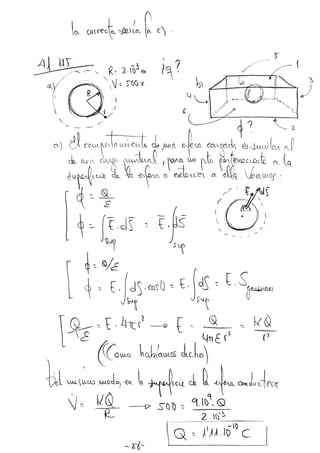 la correcta sería la c).
Al. 115
R = 2·10⁻³ m ¿q?
a) V = 500 v.
R
r
b)
5
1
3
4
6
2
ϕ ?
a) El comportamiento de una esfera cargada es similar al
de una carga puntual, para un pto perteneciente a la
superficie de la esfera o exterior a ella. Veamos:
ϕ = Q/ε
ϕ = ∫sup E.dS = E.∫sup dS
E dS
ϕ = Q/ε
ϕ = E.∫sup dS.cos0 = E.∫sup dS = E.S gaussiana
Q/ε = E.4πr² → E = Q/4πεr² = KQ/r²
(Como habíamos dicho)
Del mismo modo, en la superficie de la esfera conductora
V = KQ/R → 500 = 9.10⁹.Q/2.10⁻³
Q = 1'11.10⁻¹⁰ C